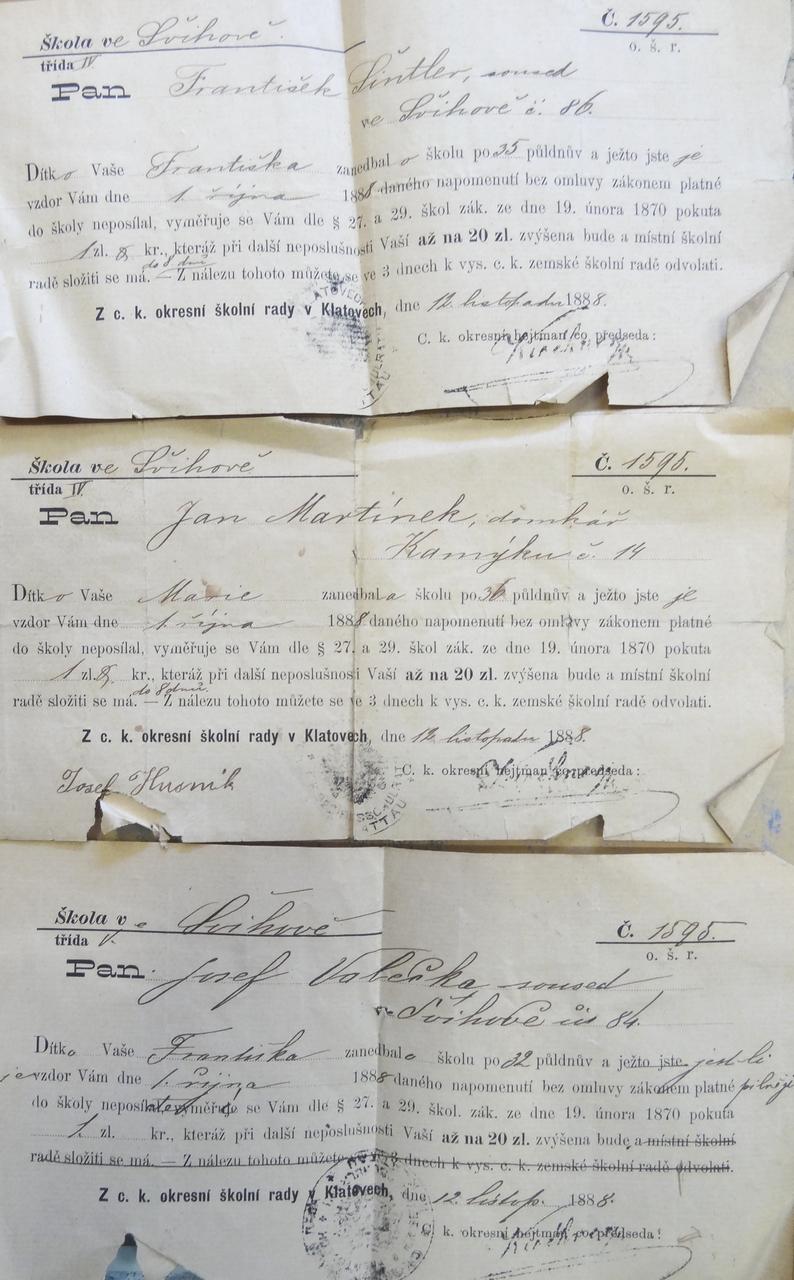 Škola ve Švihově.
třída IV.
Č. 1595.
o. š. r.
Pan František Šintler, soused
ve Švihově č. 86.
Dítko Vaše Františka zanedbalo školu po 35 půldnův a ježto jste je
vzdor Vám dne 1. října 1888 daného napomenutí bez omluvy zákonem platné
do školy neposílal, vyměřuje se Vám dle § 27. a 29. škol zák. ze dne 19. února 1870 pokuta
1 zl. kr., kteráž při další neposlušnosti Vaší až na 20 zl. zvýšena bude a místní školní
do 8 dnů
radě složiti se má. — Z nálezu tohoto můžete se ve 3 dnech k vys. c. k. zemské školní radě odvolati.
Z c. k. okresní školní rady v Klatovech, dne 12. listopadu 1888.
C. k. okresní hejtman co předseda:
Škola ve Švihově
třída IV.
Č. 1595.
o. š. r.
Pan Jan Martínek, domkář
Kamýku č. 14
Dítko Vaše Marie zanedbala školu po 36 půldnův a ježto jste je
vzdor Vám dne 1. října 1888 daného napomenutí bez omluvy zákonem platné
do školy neposílal, vyměřuje se Vám dle § 27. a 29. škol. zák. ze dne 19. února 1870 pokuta
1 zl. kr., kteráž při další neposlušnosti Vaší až na 20 zl. zvýšena bude a místní školní
do 8 dnů.
radě složiti se má. — Z nálezu tohoto můžete se ve 3 dnech k vys. c. k. zemské školní radě odvolati.
Z c. k. okresní školní rady v Klatovech, dne 12. listopadu 1888.
C. k. okresní hejtman co předseda:
Josef Husník
Škola ve Švihově
třída V.
Č. 1595.
o. š. r.
Pan Josef soused
ve Švihově čís 84.
Dítko Vaše Františka zanedbalo školu po 32 půldnův a ježto jste jestli
je vzdor Vám dne 1. října 1888 daného napomenutí bez omluvy zákonem platné pilněji
do školy neposílal, vyměřuje se Vám dle § 27. a 29. škol. zák. ze dne 19. února 1870 pokuta
1. zl. kr., kteráž při další neposlušnosti Vaší až na 20 zl. zvýšena bude a místní školní
radě složiti se má. — Z nálezu tohoto můžete se ve 3 dnech k vys. c. k. zemské školní radě odvolati.
Z c. k. okresní školní rady v Klatovech, dne 12. listop. 1888.
C. k. okresní hejtman co předseda: